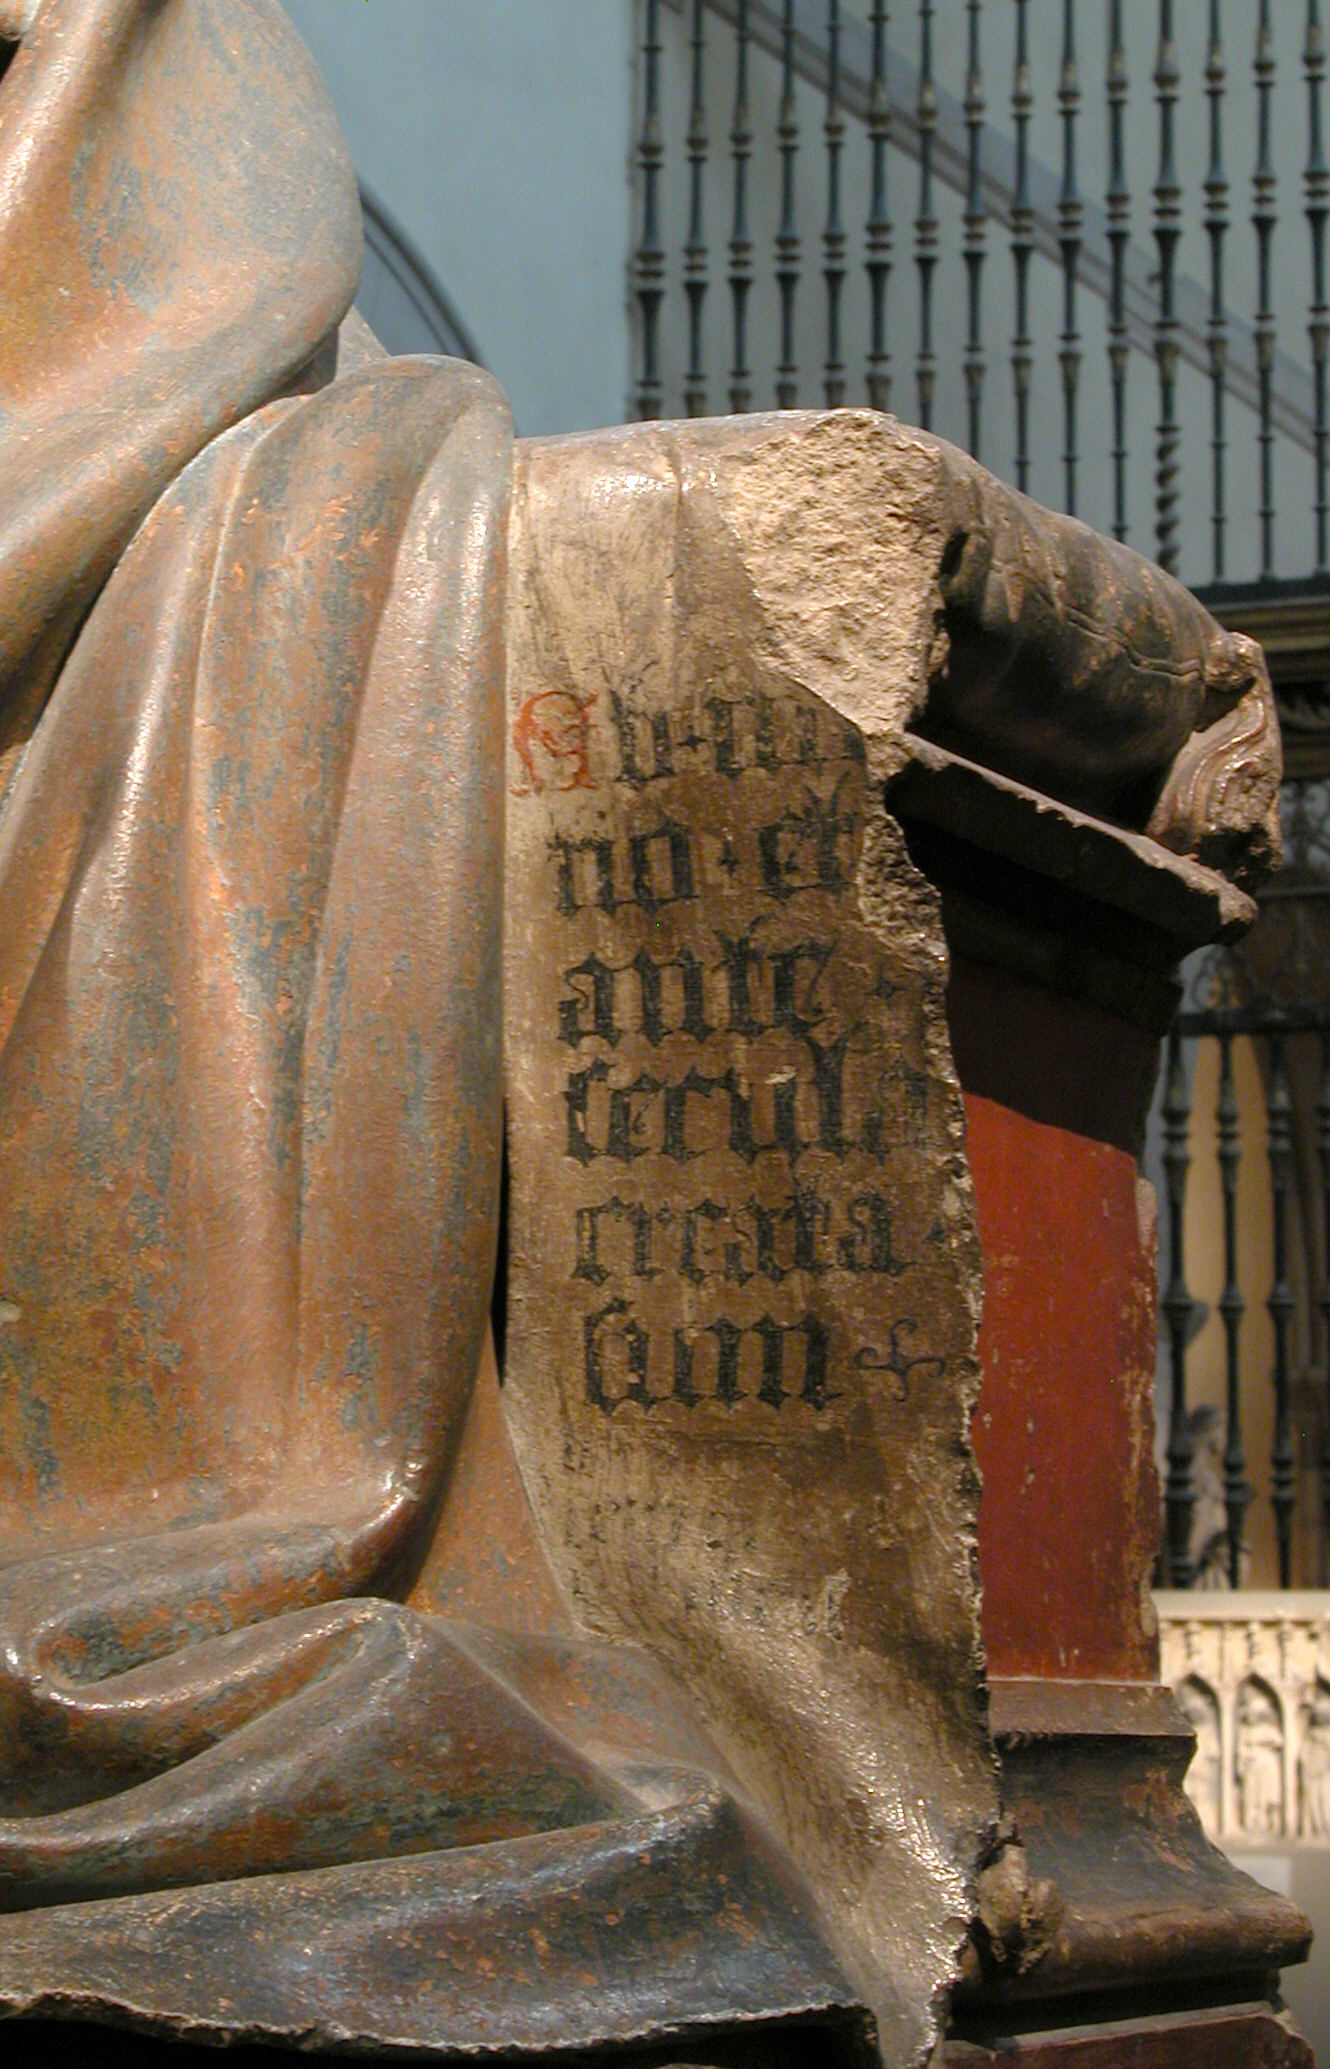 Ab · ini
no · et
ante ·
secula
creata ·
sum